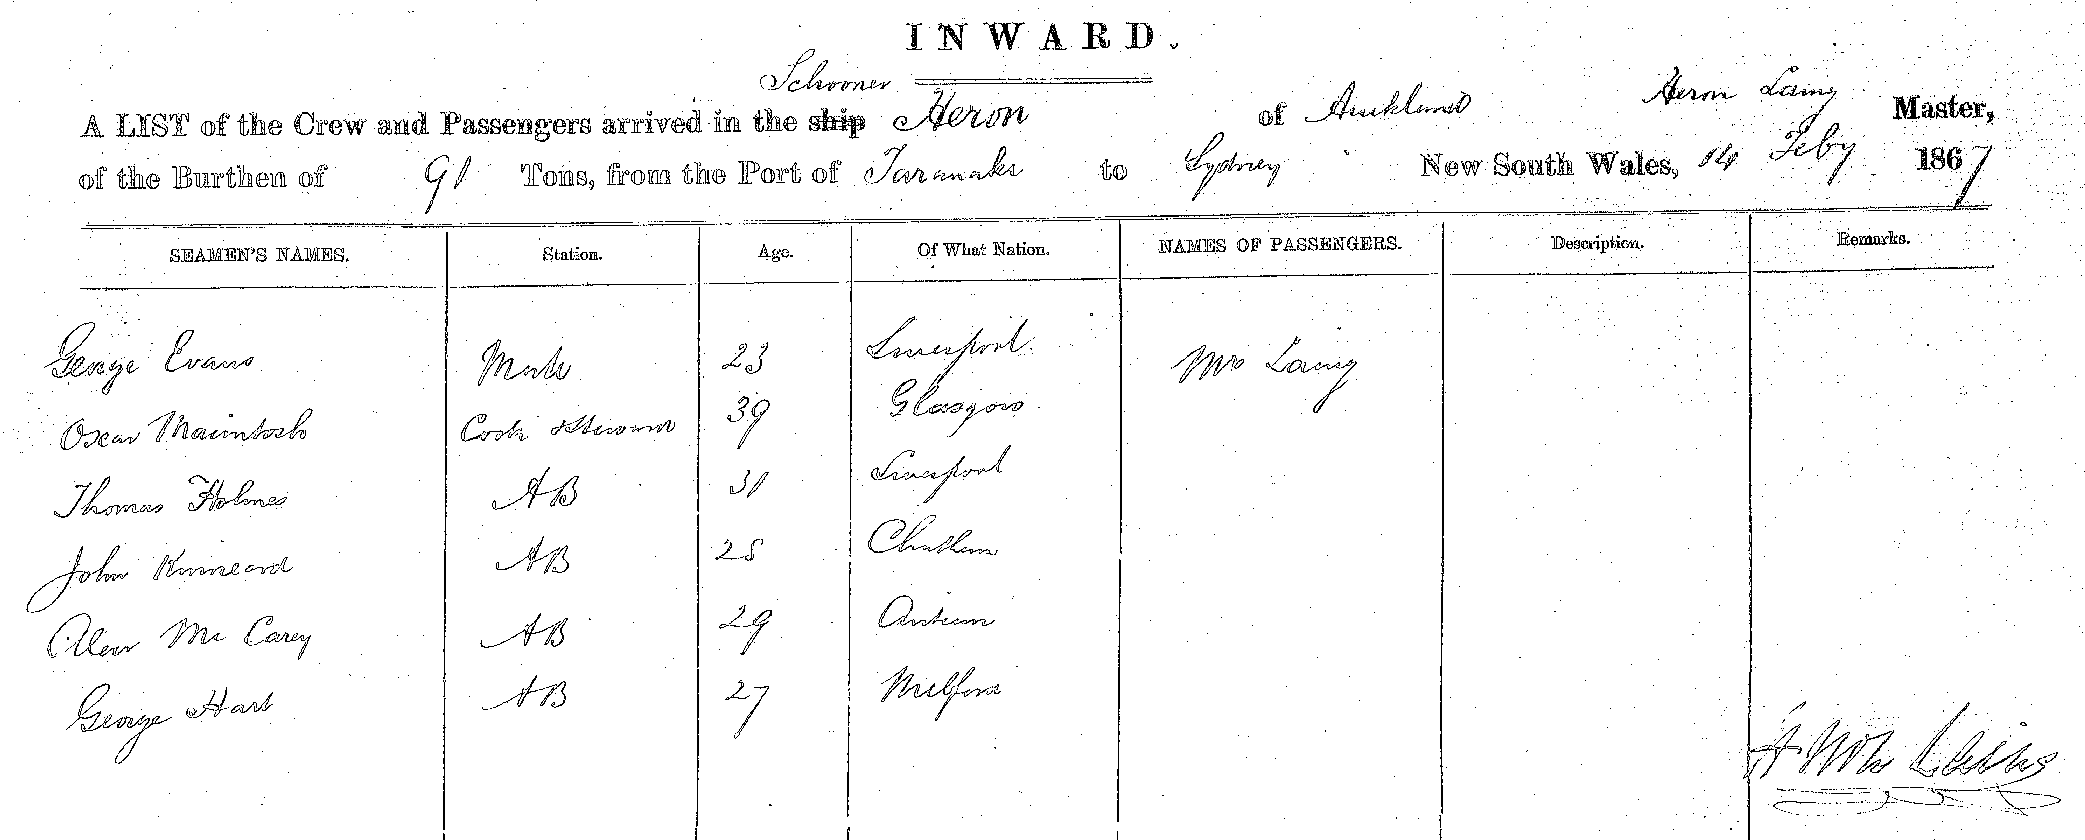 INWARD.
Schooner
A LIST of the Crew and Passengers arrived in the ship Heron of Auckland Heron Laing Master,
of the Burthen of 91 Tons, from the Port of Taranaki to Sydney New South Wales, 14 Feby 1867
SEAMEN'S NAMES. Station. Age. Of What Nation. NAMES OF PASSENGERS. Description. Remarks.
George Evans Mate 23 Liverpool Mrs Laing
Oscar Macintosh Cook & Steward 39 Glasgow
Thomas Holmes AB 31 Liverpool
John Kinneard AB 28 Chatham
Alexr Mc Carey AB 29 Antrim
George Hart AB 27 Milford
Laing